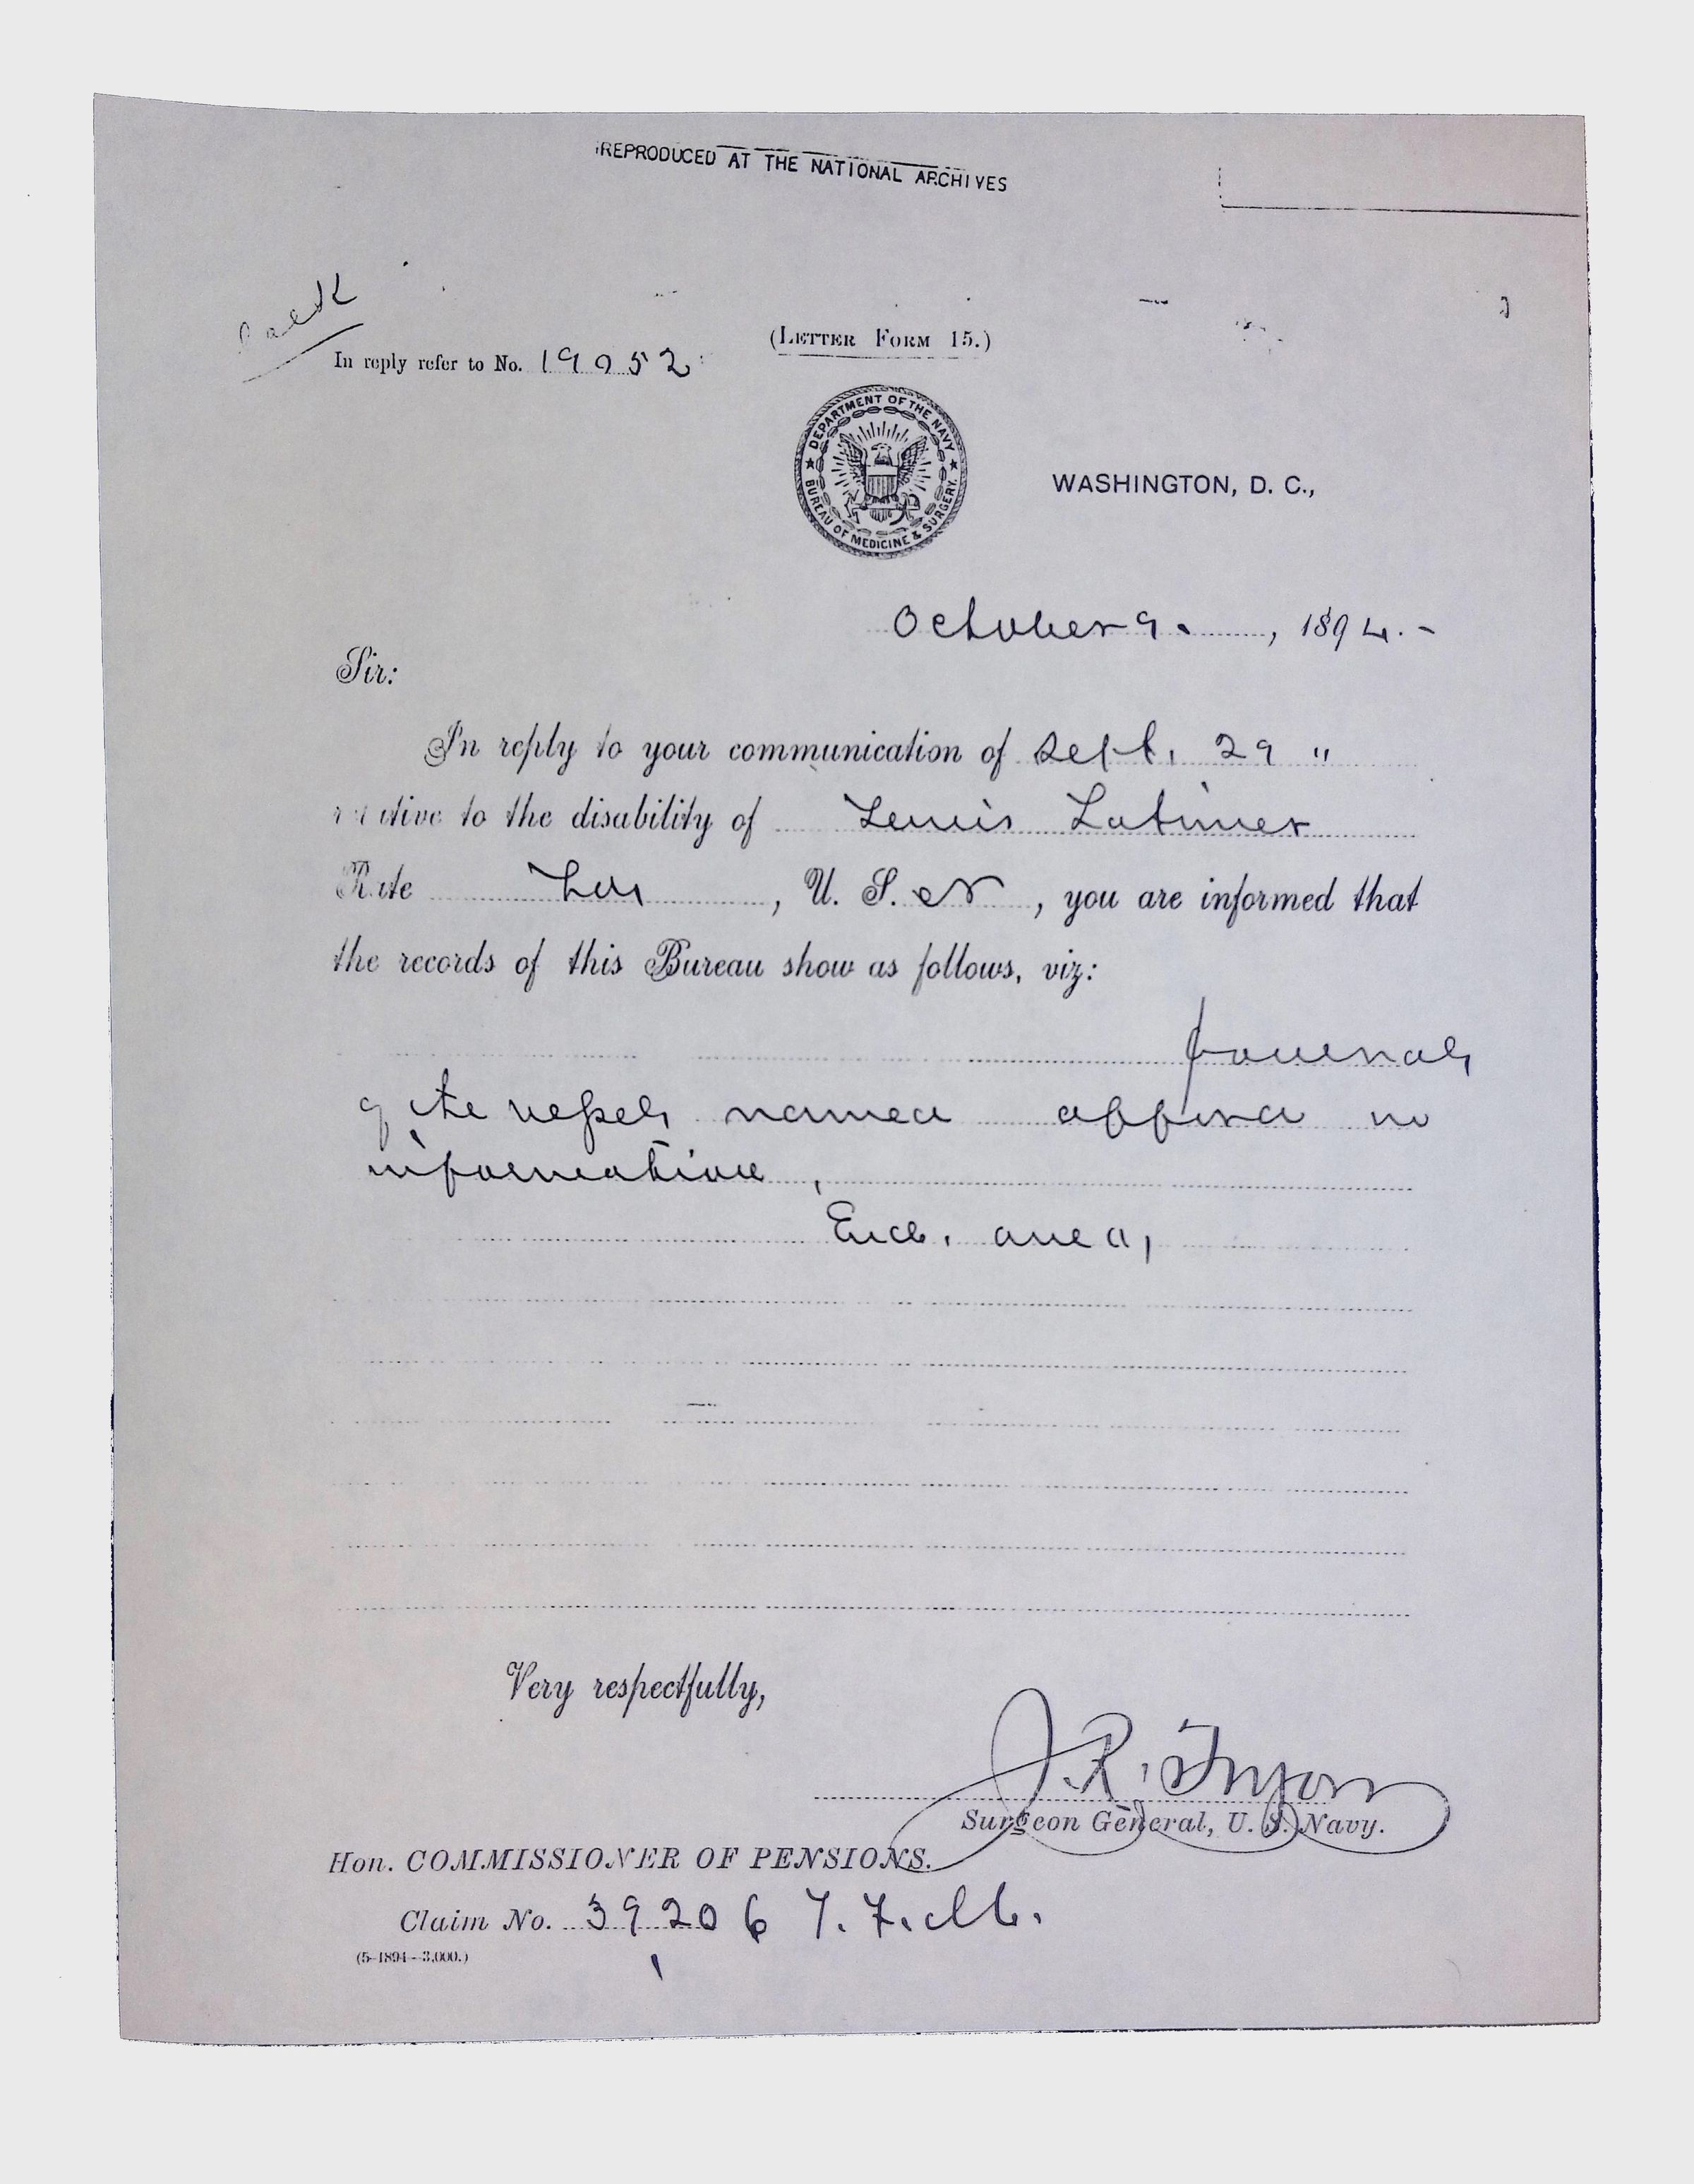 REPRODUCED AT THE NATIONAL ARCHIVES
(LETTER FORM 15.)
In reply refer to No. 19052
DEPARTMENT OF THE NAVY
BUREAU OF MEDICINE & SURGERY.
WASHINGTON, D. C.,
October 9. , 1894.-
Sir:
In reply to your communication of Sept. 29 "
relative to the disability of Lewis Latimer
Rate Lds , U. S. N , you are informed that
the records of this Bureau show as follows, viz:
Journals
of the vessels named afford no
information,
Encl.
Very respectfully,
J. R. Tryon
Surgeon General, U. S. Navy.
Hon. COMMISSIONER OF PENSIONS.
Claim No. 39206
(5-1894--3,000.)